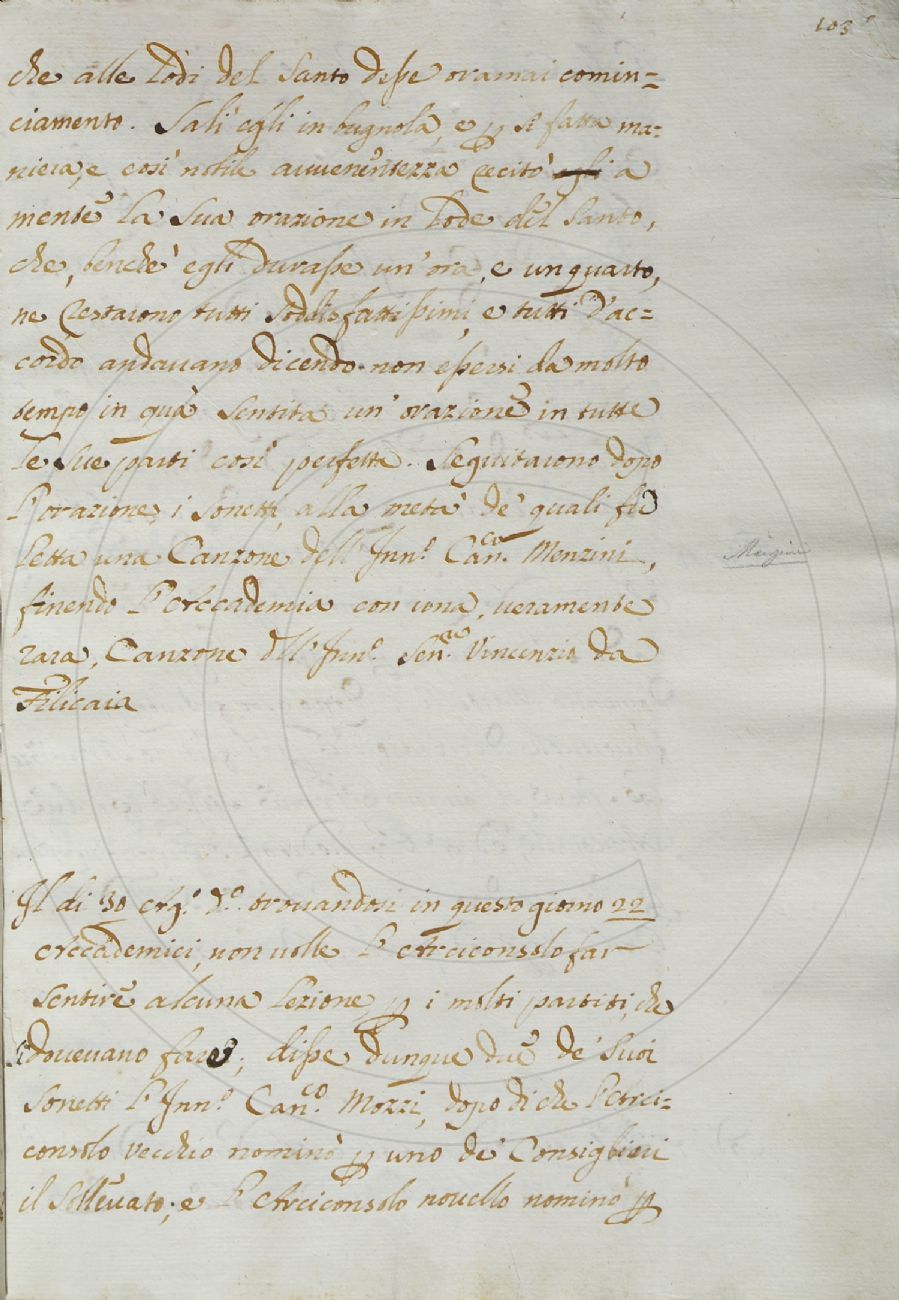 103
che alle lodi del Santo desse oramai comin=
ciamento. Salì egli in bugnola, e p sì fatta ma=
niera, e così nobile avvenentezza recitò a
mente la Sua orazione in lode del Santo,
che, benchè egli durasse un'ora, e un quarto,
ne restarono tutti Soddisfattissimi, e tutti d'ac=
cordo andavano dicendo non essersi da molto
tempo in quà Sentita un'orazione in tutte
le Sue parti così perfetta. Seguitarono dopo
l'orazione i Sonetti, alla metà de' quali fù
letta una Canzone dell'Inn.º Can.co Menzini,
Menzini
finendo l'Accademia con una, veramente
rara, Canzone dell'Inn.º Sen.re Vincenzio da
Filicaia
Il dì 30 Ag.º d.º trovandosi in questo giorno 22
Accademici, non volle l'Arciconsolo far
Sentire alcuna Lezione p i molti partiti, che
si dovevano fare; disse dunque due de' Suoi
Sonetti l'Inn.º Can.co Mozzi, dopo di che l'Arci=
consolo vecchio nominò p uno de' Consiglieri
il Sollevato; e l'Arciconsolo novello nominò p